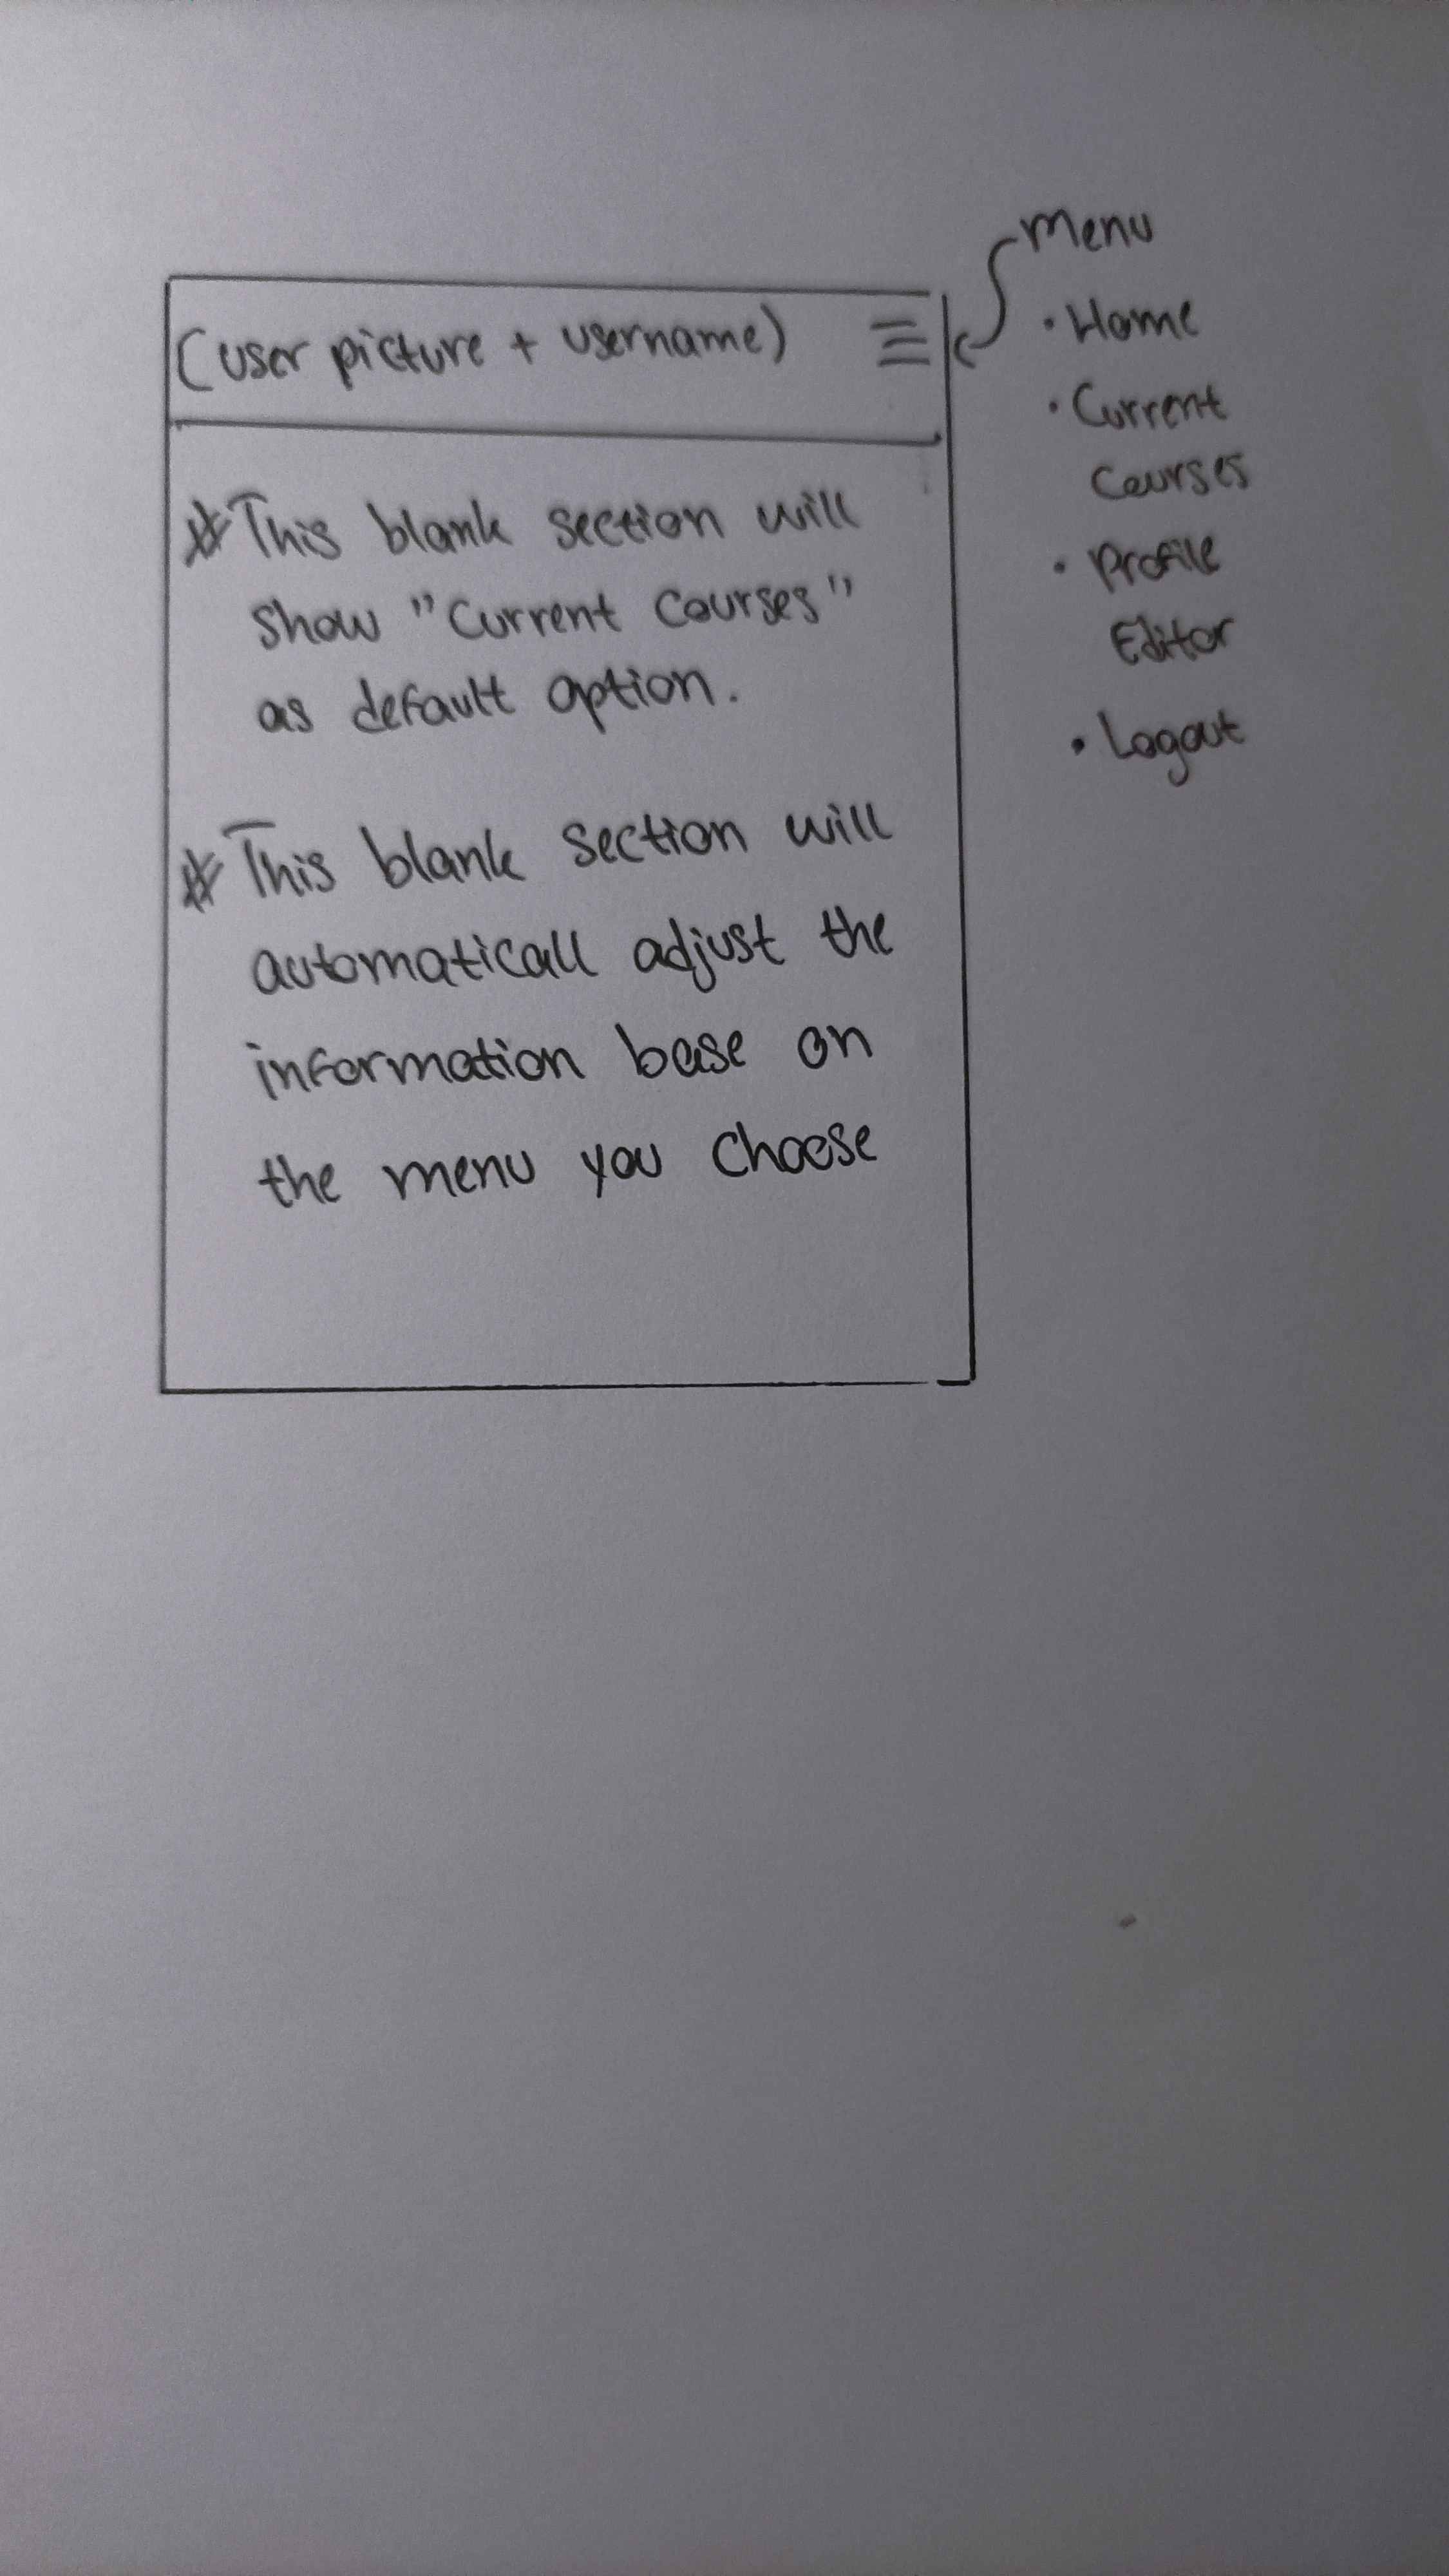 (user picture + username)
* This blank section will
show "Current Courses"
as default option.
* This blank section will
automaticall adjust the
information base on
the menu you choose
Menu
• Home
• Current
Courses
• Profile
Editor
• Logout